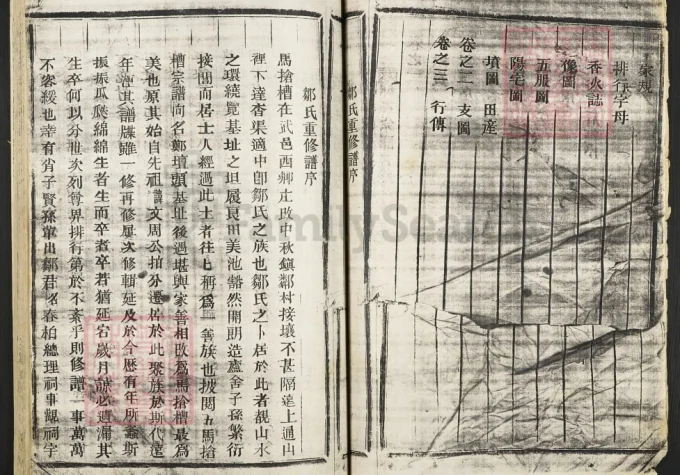 家規
排行字母
香火誌
像圖
五服圖
陽宅圖
墳圖 田產
卷之二 支圖
卷之三 行傳
鄒氏重修譜序
鄒氏重修譜序
馬搶槽在武邑西鄉庄改中秋鎮鄒村接壤不甚隔遠上通山
裡下達杏渠適中卽鄒氏之族也鄒氏之卜居於此者覩山水
之環繞覽基址之坦履良田美池豁然開朗造廬舍子孫繁衍
接閧而居士人經過此土者往往稱爲一善族也披閱五馬搶
槽宗譜向名鄭墳頭基址後過堪輿家善相改爲馬搶槽最爲
美也原其始自先祖諱文周公拍分遷居於此聚族於斯代遠
年湮其譜牒雖一修再修屢次修輯延及於今歷有年所螽斯
振振瓜瓞綿綿生者生而卒者卒若猶延宕歲月誠必遺漏其
生卒何以分世次列尊卑排行第於不紊乎則修譜一事萬萬
不容緩也幸有肖子賢孫輩出鄒君昭春柏總理祠事觀祠宇
FamilySearch